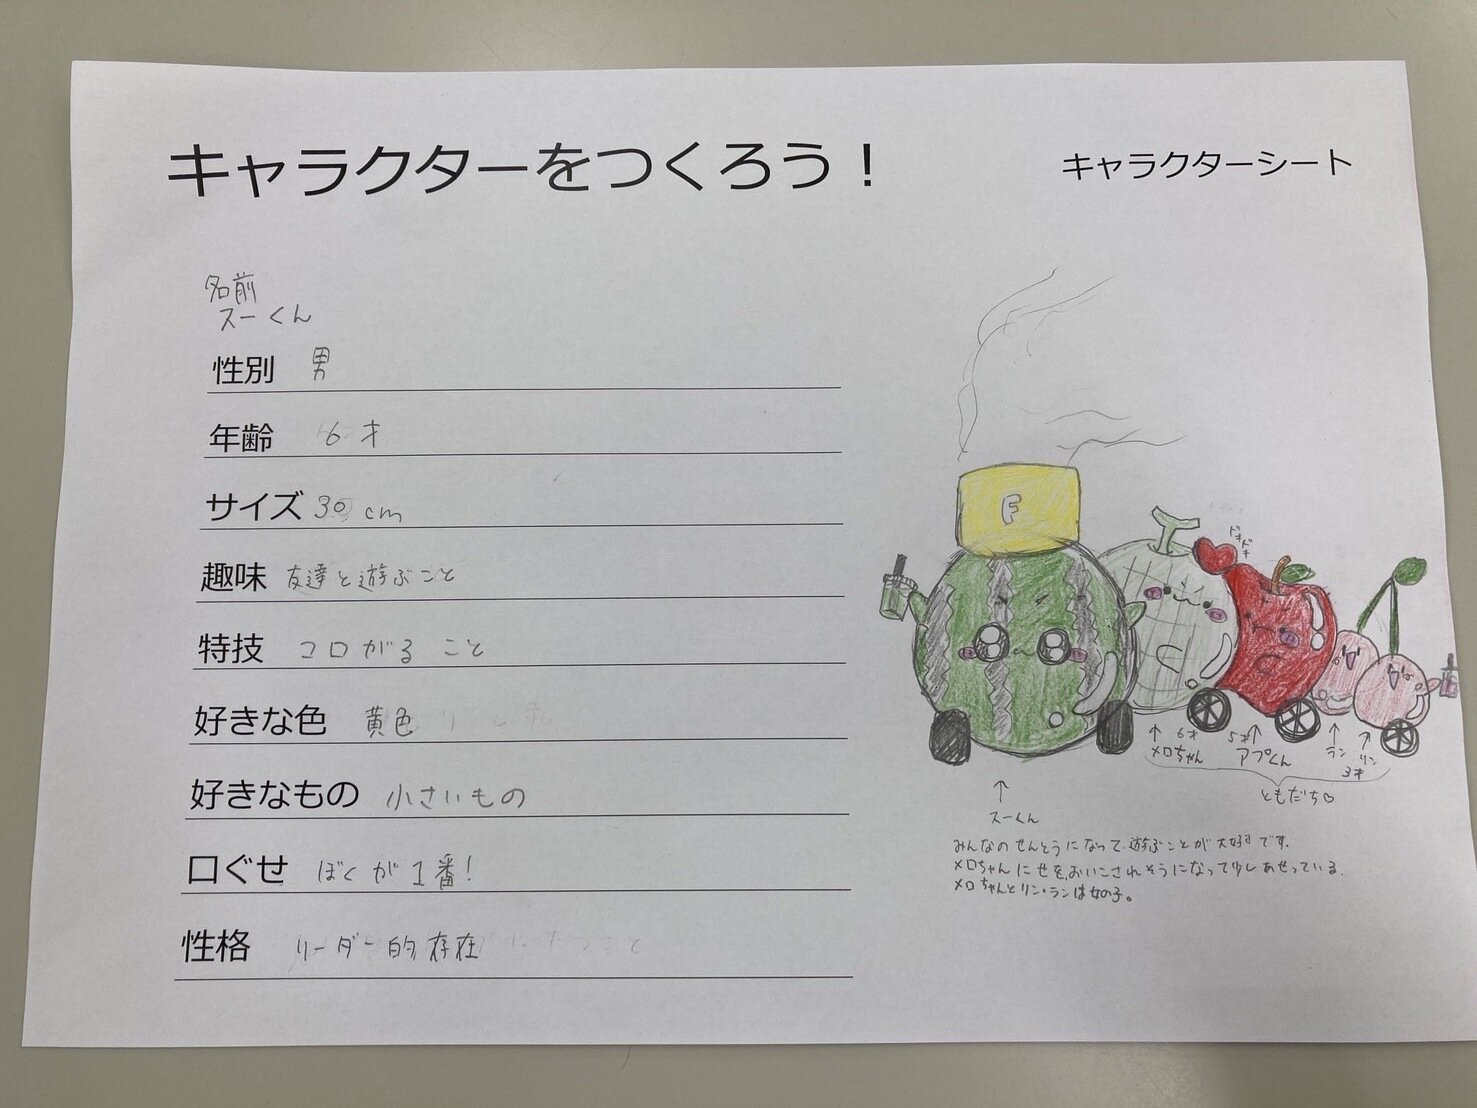 キャラクターをつくろう！
キャラクターシート
名前
スーくん
性別 男
年齢 6才
サイズ 30cm
趣味 友達と遊ぶこと
特技 コロがること
好きな色 黄色
好きなもの 小さいもの
口ぐせ ぼくが1番!
性格 リーダー的存在
F
ドキドキ
↑ メロちゃん 6才
5才 ↑ アプくん
↑ ラン ↑ リン
3才
ともだち♡
↑
スーくん
みんなのせんとうになって、遊ぶことが大好きです。
メロちゃんにせを、おいこされそうになって少しあせっている。
メロちゃんとリン・ランは女の子。